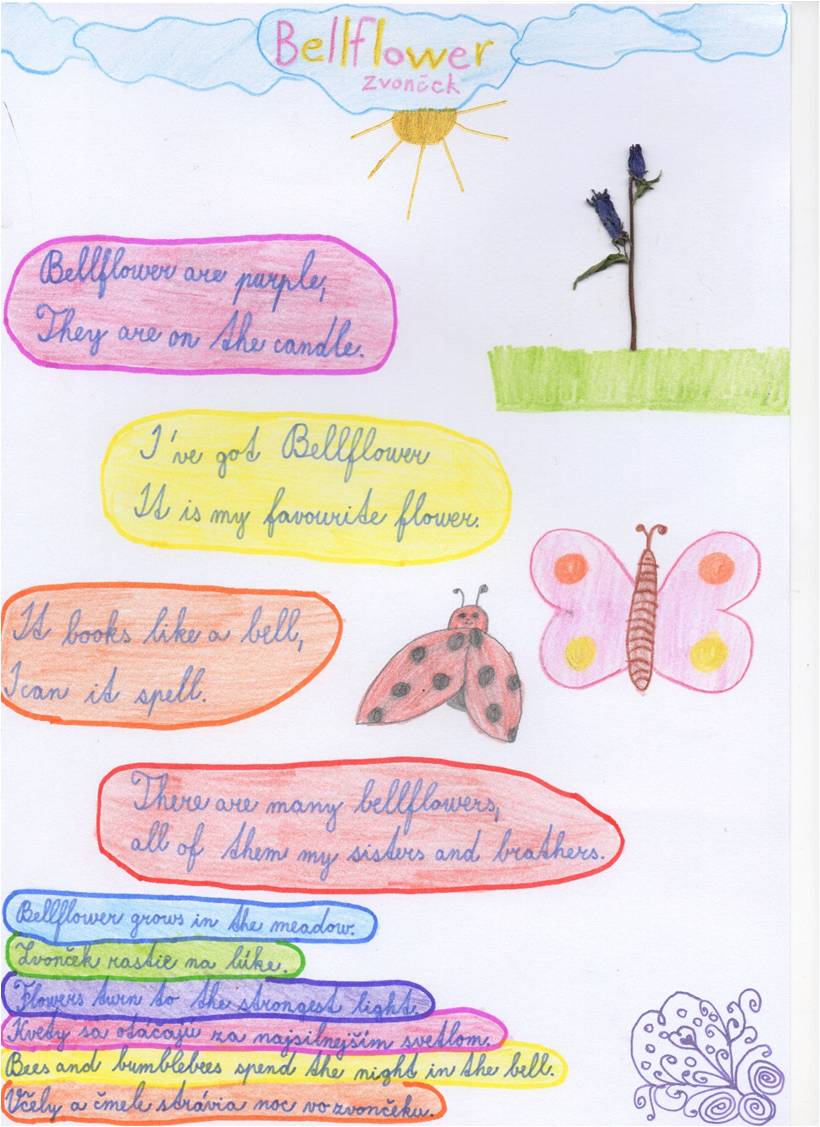 Bellflower
zvonček
Bellflower are purple,
They are on the candle.
I've got Bellflower
It is my favourite flower.
It books like a bell,
I can it spell.
There are many bellflowers,
all of them my sisters and brathers.
Bellflower grows in the meadow.
Zvonček rastie na lúke.
Flowers turn to the strongest light.
Kvety sa otáčajú za najsilnejším svetlom.
Bees and bumblebees spend the night in the bell.
Včely a čmele strávia noc vo zvončeku.